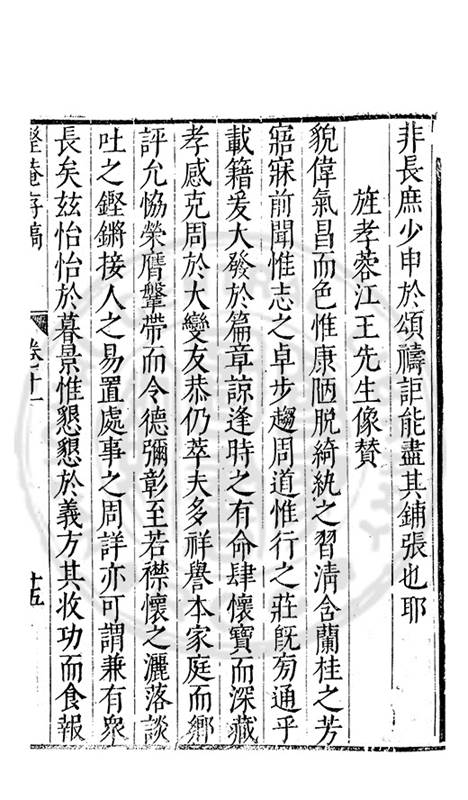 非長庶少申於頌禱詎能盡其鋪張也耶
旌孝蓉江王先生像贊
貌偉氣昌而色惟康陋脫綺紈之習清含蘭桂之芳
寤寐前聞惟志之卓步趨周道惟行之莊旣㓜通乎
載籍爰大發於篇章諒逢時之有命肆懷寶而深藏
孝感克周於大變友恭仍萃夫多祥譽本家庭而鄉
評允恊榮膺鞶帶而令德彌彰至若襟懷之灑落談
吐之鏗鏘接人之易置處事之周詳亦可謂兼有衆
長矣玆怡怡於暮景惟懇懇於義方其收功而食報
庵存稿
卷十一
十五